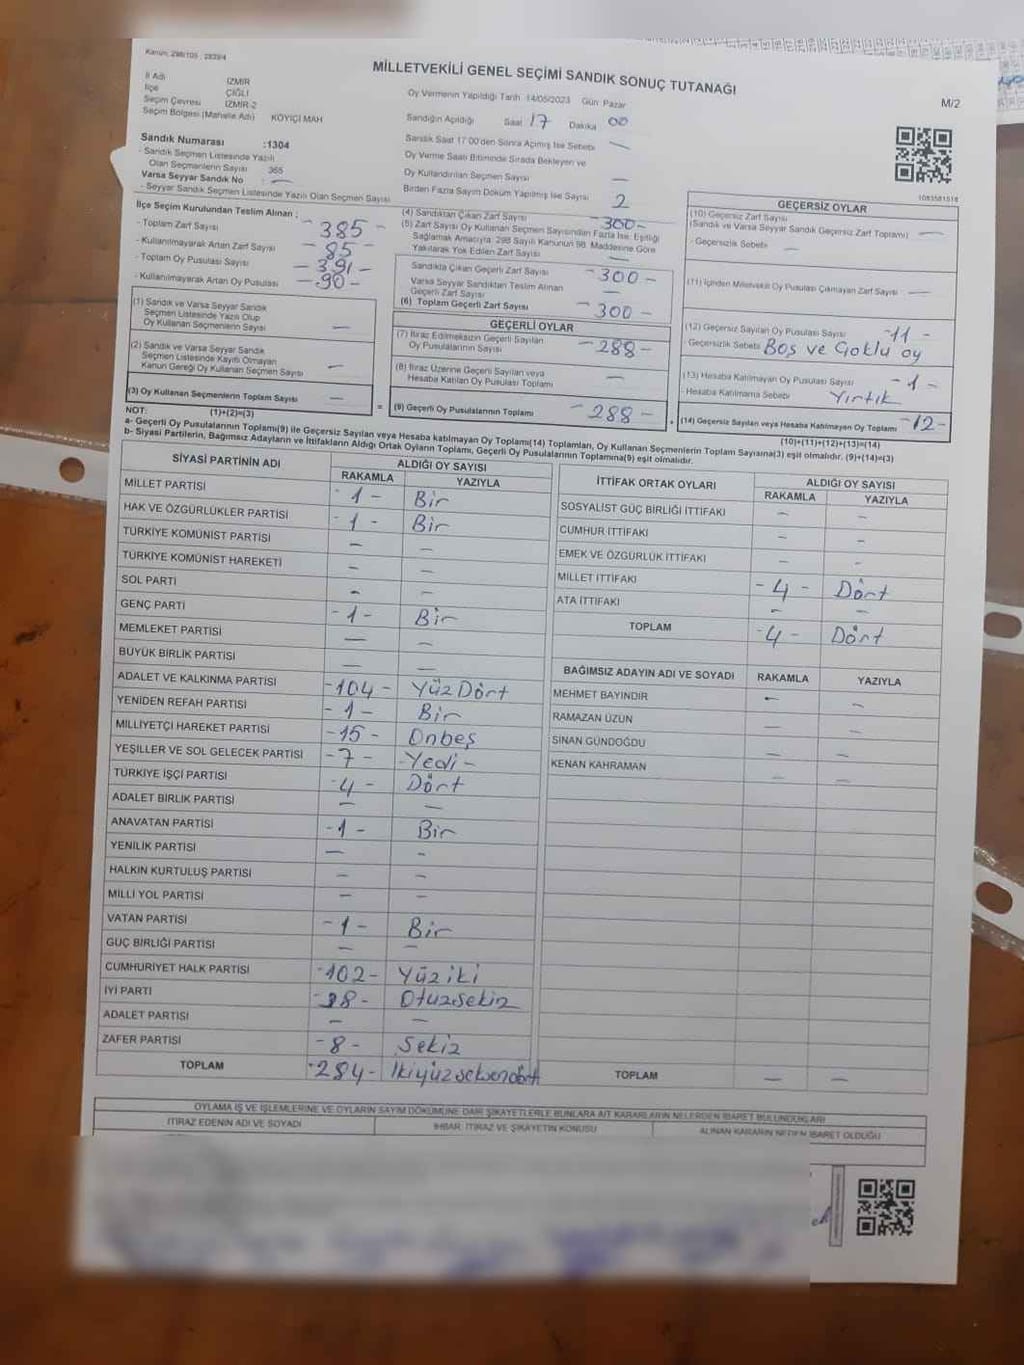 Kanun: 298/105 ; 2839/4
MİLLETVEKİLİ GENEL SEÇİMİ SANDIK SONUÇ TUTANAĞI
M/2
İl Adı İZMİR
İlçe ÇİĞLİ
Seçim Çevresi İZMİR-2
Seçim Bölgesi (Mahalle Adı) KÖYİÇİ MAH
Oy Vermenin Yapıldığı Tarih 14/05/2023 Gün Pazar
Sandığın Açıldığı Saat 17 Dakika 00
Sandık Saat 17:00'den Sonra Açımış İse Sebebi —
Oy Verme Saati Bitiminde Sırada Bekleyen ve
Oy Kullandırılan Seçmen Sayısı —
Birden Fazla Sayım Döküm Yapılmış İse Sayısı 2
Sandık Numarası :1304
- Sandık Seçmen Listesinde Yazılı
Olan Seçmenlerin Sayısı 365
Varsa Seyyar Sandık No —
- Seyyar Sandık Seçmen Listesinde Yazılı Olan Seçmen Sayısı
1083581518
İlçe Seçim Kurulundan Teslim Alınan ;
- Toplam Zarf Sayısı - 385 -
- Kullanılmayarak Artan Zarf Sayısı - 85 -
- Toplam Oy Pusulası Sayısı - 391 -
- Kullanılmayarak Artan Oy Pusulası - 90 -
(1) Sandık ve Varsa Seyyar Sandık
Seçmen Listesinde Yazılı Olup
Oy Kullanan Seçmenlerin Sayısı —
(2) Sandık ve Varsa Seyyar Sandık
Seçmen Listesinde Kayıtlı Olmayan
Kanun Gereği Oy Kullanan Seçmen Sayısı —
(3) Oy Kullanan Seçmenlerin Toplam Sayısı —
(4) Sandıktan Çıkan Zarf Sayısı - 300 -
(5) Zarf Sayısı Oy Kullanan Seçmen Sayısından Fazla İse, Eşitliği
Sağlamak Amacıyla, 298 Sayılı Kanunun 98. Maddesine Göre
Yakılarak Yok Edilen Zarf Sayısı —
Sandıkta Çıkan Geçerli Zarf Sayısı - 300 -
Varsa Seyyar Sandıktan Teslim Alınan
Geçerli Zarf Sayısı —
(6) Toplam Geçerli Zarf Sayısı - 300 -
GEÇERLİ OYLAR
(7) İtiraz Edilmeksizin Geçerli Sayılan
Oy Pusulalarının Sayısı - 288 -
(8) İtiraz Üzerine Geçerli Sayılan veya
Hesaba Katılan Oy Pusulası Toplamı —
(9) Geçerli Oy Pusulalarının Toplamı - 288 -
GEÇERSİZ OYLAR
(10) Geçersiz Zarf Sayısı
(Sandık ve Varsa Seyyar Sandık Geçersiz Zarf Toplamı) —
- Geçersizlik Sebebi —
(11) İçinden Milletvekili Oy Pusulası Çıkmayan Zarf Sayısı —
(12) Geçersiz Sayılan Oy Pusulası Sayısı - 11 -
- Geçersizlik Sebebi Boş ve Çoklu oy
(13) Hesaba Katılmayan Oy Pusulası Sayısı - 1 -
- Hesaba Katılmama Sebebi Yırtık
(14) Geçersiz Sayılan veya Hesaba Katılmayan Oy Toplamı - 12 -
NOT: (1)+(2)=(3) (10)+(11)+(12)+(13)=(14)
a- Geçerli Oy Pusulalarının Toplamı(9) ile Geçersiz Sayılan veya Hesaba katılmayan Oy Toplamı(14) Toplamları, Oy Kullanan Seçmenlerin Toplam Sayısına(3) eşit olmalıdır. (9)+(14)=(3)
b- Siyasi Partilerin, Bağımsız Adayların ve İttifakların Aldığı Ortak Oyların Toplamı, Geçerli Oy Pusulalarının Toplamına(9) eşit olmalıdır.
SİYASİ PARTİNİN ADI ALDIĞI OY SAYISI
RAKAMLA YAZIYLA
MİLLET PARTİSİ - 1 - Bir
HAK VE ÖZGÜRLÜKLER PARTİSİ - 1 - Bir
TÜRKİYE KOMÜNİST PARTİSİ — —
TÜRKİYE KOMÜNİST HAREKETİ — —
SOL PARTİ — —
GENÇ PARTİ - 1 - Bir
MEMLEKET PARTİSİ — —
BÜYÜK BİRLİK PARTİSİ — —
ADALET VE KALKINMA PARTİSİ - 104 - Yüz Dört
YENİDEN REFAH PARTİSİ - 1 - Bir
MİLLİYETÇİ HAREKET PARTİSİ - 15 - Onbeş
YEŞİLLER VE SOL GELECEK PARTİSİ - 7 - Yedi -
TÜRKİYE İŞÇİ PARTİSİ - 4 - Dört
ADALET BİRLİK PARTİSİ — —
ANAVATAN PARTİSİ - 1 - Bir
YENİLİK PARTİSİ — —
HALKIN KURTULUŞ PARTİSİ — —
MİLLİ YOL PARTİSİ — —
VATAN PARTİSİ - 1 - Bir
GÜÇ BİRLİĞİ PARTİSİ — —
CUMHURİYET HALK PARTİSİ - 102 - Yüz iki
İYİ PARTİ - 38 - Otuzsekiz
ADALET PARTİSİ — —
ZAFER PARTİSİ - 8 - Sekiz
TOPLAM - 284 - İkiyüzseksendört
İTTİFAK ORTAK OYLARI ALDIĞI OY SAYISI
RAKAMLA YAZIYLA
SOSYALİST GÜÇ BİRLİĞİ İTTİFAKI — —
CUMHUR İTTİFAKI — —
EMEK VE ÖZGÜRLÜK İTTİFAKI — -
MİLLET İTTİFAKI - 4 - Dört
ATA İTTİFAKI — —
TOPLAM - 4 - Dört
BAĞIMSIZ ADAYIN ADI VE SOYADI RAKAMLA YAZIYLA
MEHMET BAYINDIR — —
RAMAZAN ÜZÜN — —
SİNAN GÜNDOĞDU — —
KENAN KAHRAMAN — —
TOPLAM — —
OYLAMA İŞ VE İŞLEMLERİNE VE OYLARIN SAYIM DÖKÜMÜNE DAİR ŞİKAYETLERLE BUNLARA AİT KARARLARIN NELERDEN İBARET BULUNDUKLARI
İTİRAZ EDENİN ADI VE SOYADI İHBAR, İTİRAZ VE ŞİKAYETİN KONUSU ALINAN KARARIN NEDEN İBARET OLDUĞU